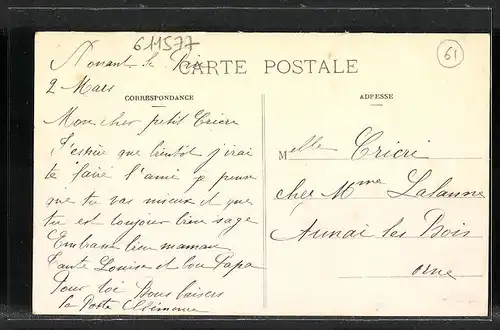 611577
61
Nonant le Pin
CARTE POSTALE
2 Mars
CORRESPONDANCE
ADRESSE
Mon cher petit Cricri
J'espère que bientôt j'irai
te faire l'ami je pense
que tu vas mieux et que
tu est toujour bien sage
Embrasse bien maman
tante Louise et bon Papa
Pour toi Bons baisers
la Poste Clémence
Melle Cricri
chez Mme Lalanne
Aunai les Bois
Orne